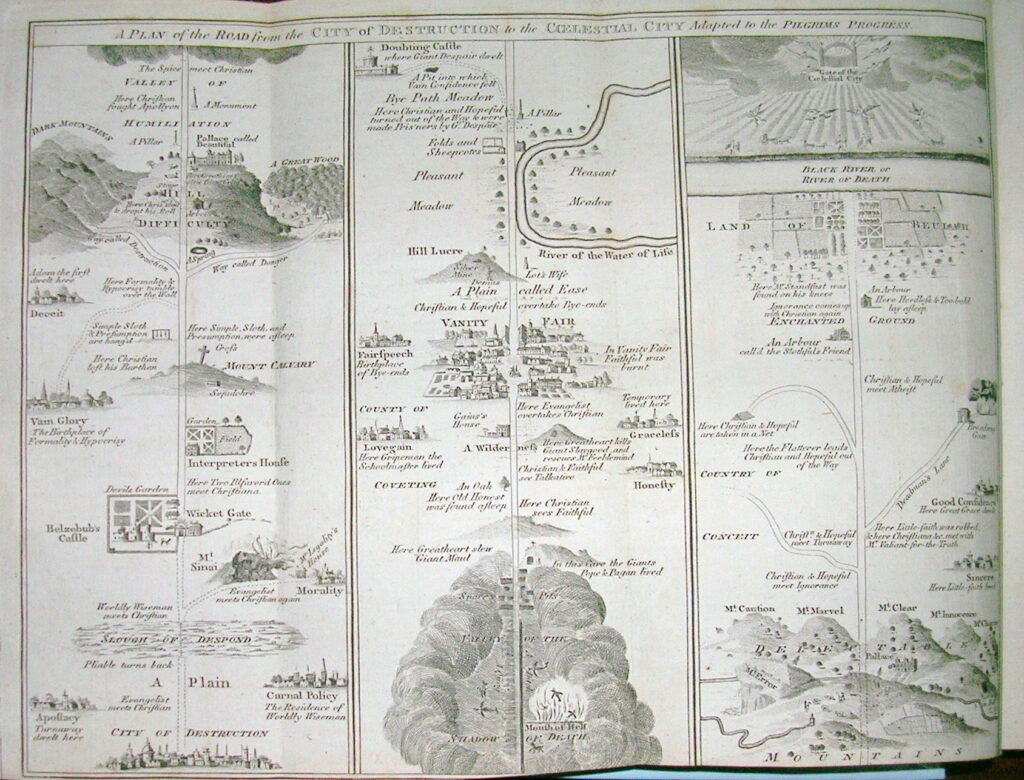 A PLAN of the ROAD from the CITY of DESTRUCTION to the CŒLESTIAL CITY Adapted to the PILGRIMS PROGRESS.
The Spies meet Christian
VALLEY OF
Here Christian
fought Apollyon
A Monument
HUMILIATION
DARK MOUNTAINS
A Pillar
Pallace called
Beautiful
A GREAT WOOD
Stage
HILL
Here Christian
dropt his Roll
Arbor
DIFFICULTY
Way called Destruction
A Spring
Way called Danger
Adam the first
dwelt here
Deceit
Here Formality &
Hypocrisy tumble
over the Wall
Simple Sloth
& Presumption
are hang'd
Here Simple, Sloth, and
Presumption, were asleep
Cross
MOUNT CALVARY
Here Christian
lost his Burthen
Sepulchre
Vain Glory
The Birthplace of
Formality & Hypocrisy
Garden
Field
Interpreters House
Devils Garden
Here Two Ill favord Ones
meet Christiana
Wicket Gate
Belzebub's
Castle
Mt
Sinai
Mr Legality's
House
Morality
Evangelist
meets Christian again
Worldly Wiseman
meets Christian
SLOUGH OF DESPOND
Pliable turns back
A Plain
Carnal Policy
The Residence of
Worldly Wiseman
Evangelist
meets Christian
Apostacy
Turnaway
dwelt here
CITY OF DESTRUCTION
Doubting Castle
where Giant Despair dwelt
A Pit into which
Vain Confidence fell
Bye Path Meadow
Here Christian and Hopeful
turned out of the Way & were
made Pris'ners by Gt. Despair
A Pillar
Folds and
Sheepcotes
Pleasant
Meadow
Pleasant
Meadow
Hill Lucre
River of the Water of Life
Silver
Mine
Demas
Lot's Wife
A Plain called Ease
Christian & Hopeful overtake Bye-ends
VANITY FAIR
Fairspeech
Birthplace
of Bye-ends
In Vanity Fair
Faithful was
burnt
COUNTY OF
Here Evangelist
overtakes Christian
Temporary
lived here
Graceless
Gaius's
House
Lovegain
Here Gripeman the
Schoolmaster lived
A Wilderness
Here Greatheart kills
Giant Slaygood and
rescues Mr Feeblemind
Christian & Faithful
see Talkative
Honesty
COVETING
An Oak
Here Old Honest
was found asleep
Here Christian
sees Faithful
Here Greatheart slew
Giant Maul
In this Cave the Giants
Pope & Pagan lived
Snares
Pits
VALLEY OF THE
Mouth of Hell
SHADOW OF DEATH
Gate of the
Cœlestial City
BLACK RIVER or
RIVER OF DEATH
LAND OF BEULAH
Here Mr Standfast was
found on his knees
An Arbour
Here Heedless & Too bold
lay asleep
Ignorance comes up
with Christian again
ENCHANTED GROUND
An Arbour
call'd the Slothfuls Friend
Christian & Hopeful
meet Atheist
Here Christian & Hopeful
are taken in a Net
Here the Flatterer leads
Christian and Hopeful out
of the Way
Broadway
Gate
Deadman's Lane
COUNTRY OF
Good Confidence
Here Great Grace
CONCEIT
Christn. & Hopeful
meet Turnaway
Here Little-faith was robbed
& here Christiana &c met with
Mr Valiant-for-the-Truth
Christian & Hopeful
meet Ignorance
Sincere
Here Little-faith
Mt Caution
Mt Marvel
Mt Clear
Mt Innocence
DELECTABLE
Pallace
Mt Error
MOUNTAINS